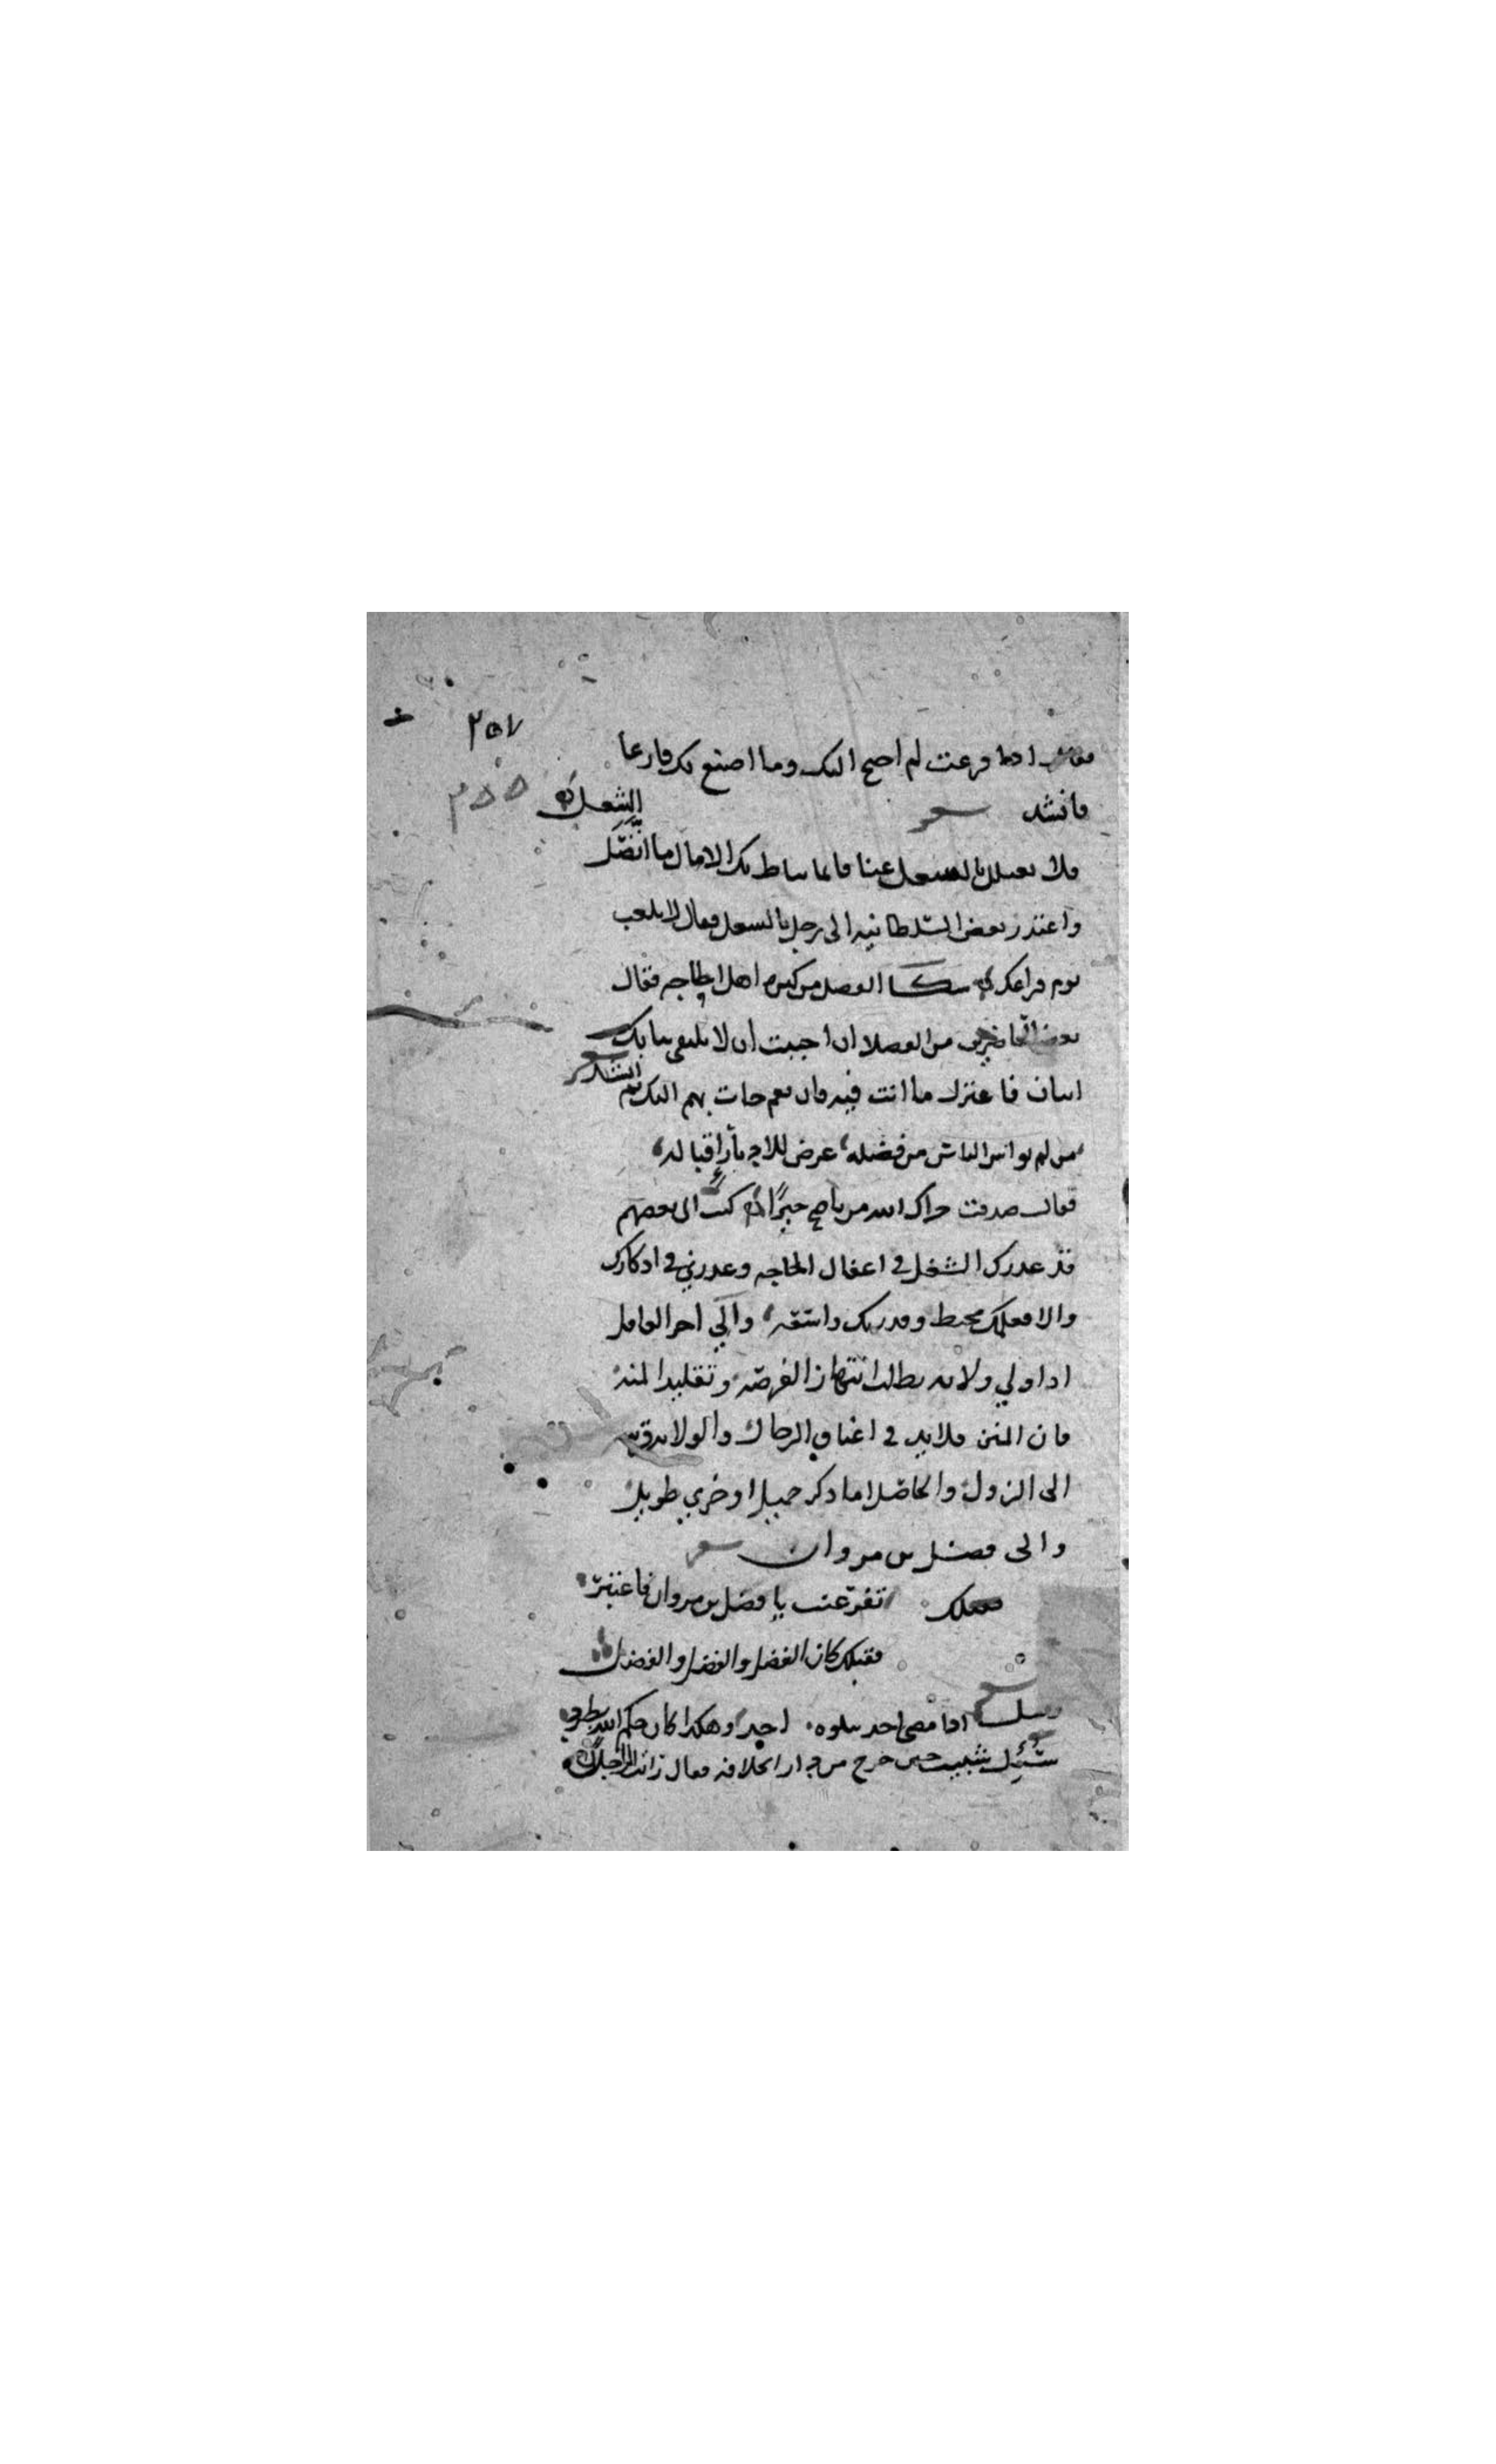 ٢٥٧
٢٥٥
فقال اذا فرغت لم احتج اليك وما اصنع بك فارغا
فانشد شعر
فلا تعتلل بالشغل عنا فانما تناط بك الامال ما اتصل الشغل
واعتذر بعض السلطانيه الى رجل بالشغل فقال لا بلغت
يوم فراغك شكا الفضل من كثره اهل الحاجه فقال
بعض الحاضرين من الفضلا ان احببت ان لا يلتقي ببابك
اثنان فاعتزل ما انت فيه فان نعم جات بهم اليك ثم انشد شعر
من لم يواس الناس من فضله عرض للادبار اقباله
فقال صدقت جزاك الله من ناصح خيرًا كتب الى بعضهم
قد عذرك الشغل في اغفال الحاجه وعذرني في اذكارك
والا فعلمك محيط وقدرتك واسعه والي احر العامل
اذا ولي ولايه يطالب انتهاز الفرصه وتقليد المنه
فان المنن قلايد في اعناق الرجال والولايه قريبه
الى الزوال والحاصل اما ذكر جميل او خزي طويل
والى فضل بن مروان شعر
تفرعنت يا فضل بن مروان فاعتبر فقبلك
فقبلك كان الفضل والفضل والفضل
اذا مضى احد يتلوه احد وهكذا كان حكم الله يطرد
سئل شبيب حين خرج من دار الخلافه فقال رايت الداخل